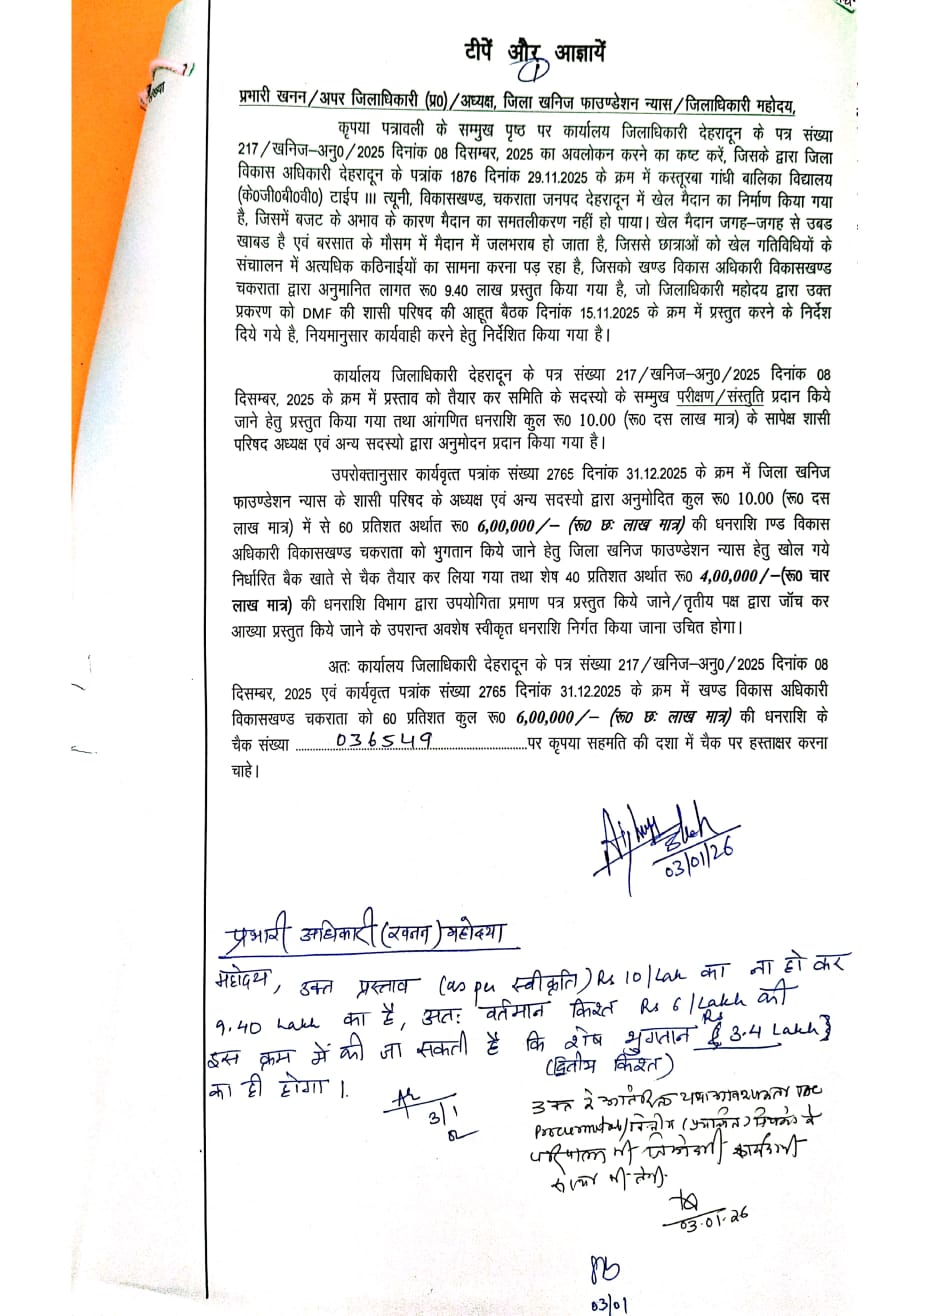 टीपें और आज्ञायें
1
प्रभारी खनन/अपर जिलाधिकारी (प्र0)/अध्यक्ष, जिला खनिज फाउण्डेशन न्यास/जिलाधिकारी महोदय,
कृपया पत्रावली के सम्मुख पृष्ठ पर कार्यालय जिलाधिकारी देहरादून के पत्र संख्या
217/खनिज–अनु0/2025 दिनांक 08 दिसम्बर, 2025 का अवलोकन करने का कष्ट करें, जिसके द्वारा जिला
विकास अधिकारी देहरादून के पत्रांक 1876 दिनांक 29.11.2025 के क्रम में कस्तूरबा गांधी बालिका विद्यालय
(के0जी0बी0वी0) टाईप III त्यूनी, विकासखण्ड, चकराता जनपद देहरादून में खेल मैदान का निर्माण किया गया
है, जिसमें बजट के अभाव के कारण मैदान का समतलीकरण नहीं हो पाया। खेल मैदान जगह–जगह से उबड
खाबड है एवं बरसात के मौसम में मैदान में जलभराब हो जाता है, जिससे छात्राओं को खेल गतिविधियों के
संचाालन में अत्यधिक कठिनाईयों का सामना करना पड़ रहा है, जिसको खण्ड विकास अधिकारी विकासखण्ड
चकराता द्वारा अनुमानित लागत रू0 9.40 लाख प्रस्तुत किया गया है, जो जिलाधिकारी महोदय द्वारा उक्त
प्रकरण को DMF की शासी परिषद की आहूत बैठक दिनांक 15.11.2025 के क्रम में प्रस्तुत करने के निर्देश
दिये गये है, नियमानुसार कार्यवाही करने हेतु निर्देशित किया गया है।
कार्यालय जिलाधिकारी देहरादून के पत्र संख्या 217/खनिज–अनु0/2025 दिनांक 08
दिसम्बर, 2025 के क्रम में प्रस्ताव को तैयार कर समिति के सदस्यो के सम्मुख परीक्षण/संस्तुति प्रदान किये
जाने हेतु प्रस्तुत किया गया तथा आंगणित धनराशि कुल रू0 10.00 (रू0 दस लाख मात्र) के सापेक्ष शासी
परिषद अध्यक्ष एवं अन्य सदस्यो द्वारा अनुमोदन प्रदान किया गया है।
उपरोक्तानुसार कार्यवृत्त पत्रांक संख्या 2765 दिनांक 31.12.2025 के क्रम में जिला खनिज
फाउण्डेशन न्यास के शासी परिषद के अध्यक्ष एवं अन्य सदस्यो द्वारा अनुमोदित कुल रू0 10.00 (रू0 दस
लाख मात्र) में से 60 प्रतिशत अर्थात रू0 6,00,000/– (रू0 छः लाख मात्र) की धनराशि ाण्ड विकास
अधिकारी विकासखण्ड चकराता को भुगतान किये जाने हेतु जिला खनिज फाउण्डेशन न्यास हेतु खोल गये
निर्धारित बैक खाते से चैक तैयार कर लिया गया तथा शेष 40 प्रतिशत अर्थात रू0 4,00,000/–(रू0 चार
लाख मात्र) की धनराशि विभाग द्वारा उपयोगिता प्रमाण पत्र प्रस्तुत किये जाने/तृतीय पक्ष द्वारा जॉच कर
आख्या प्रस्तुत किये जाने के उपरान्त अवशेष स्वीकृत धनराशि निर्गत किया जाना उचित होगा।
अतः कार्यालय जिलाधिकारी देहरादून के पत्र संख्या 217/खनिज–अनु0/2025 दिनांक 08
दिसम्बर, 2025 एवं कार्यवृत्त पत्रांक संख्या 2765 दिनांक 31.12.2025 के क्रम में खण्ड विकास अधिकारी
विकासखण्ड चकराता को 60 प्रतिशत कुल रू0 6,00,000/– (रू0 छः लाख मात्र) की धनराशि के
चैक संख्या ........036549........पर कृपया सहमति की दशा में चैक पर हस्ताक्षर करना
चाहे।
03/01/26
प्रभारी अधिकारी (खनन) महोदया
महोदय, उक्त प्रस्ताव (as per स्वीकृति) Rs 10/Lakh का ना हो कर
9.40 Lakh का है, अतः वर्तमान किश्त Rs 6/Lakh की
इस क्रम में की जा सकती है कि शेष भुगतान {Rs 3.4 Lakh}
(द्वितीय किश्त)
का ही होगा।
3/1
उक्त के अतिरिक्त
Procurement
03.01.26
03/01